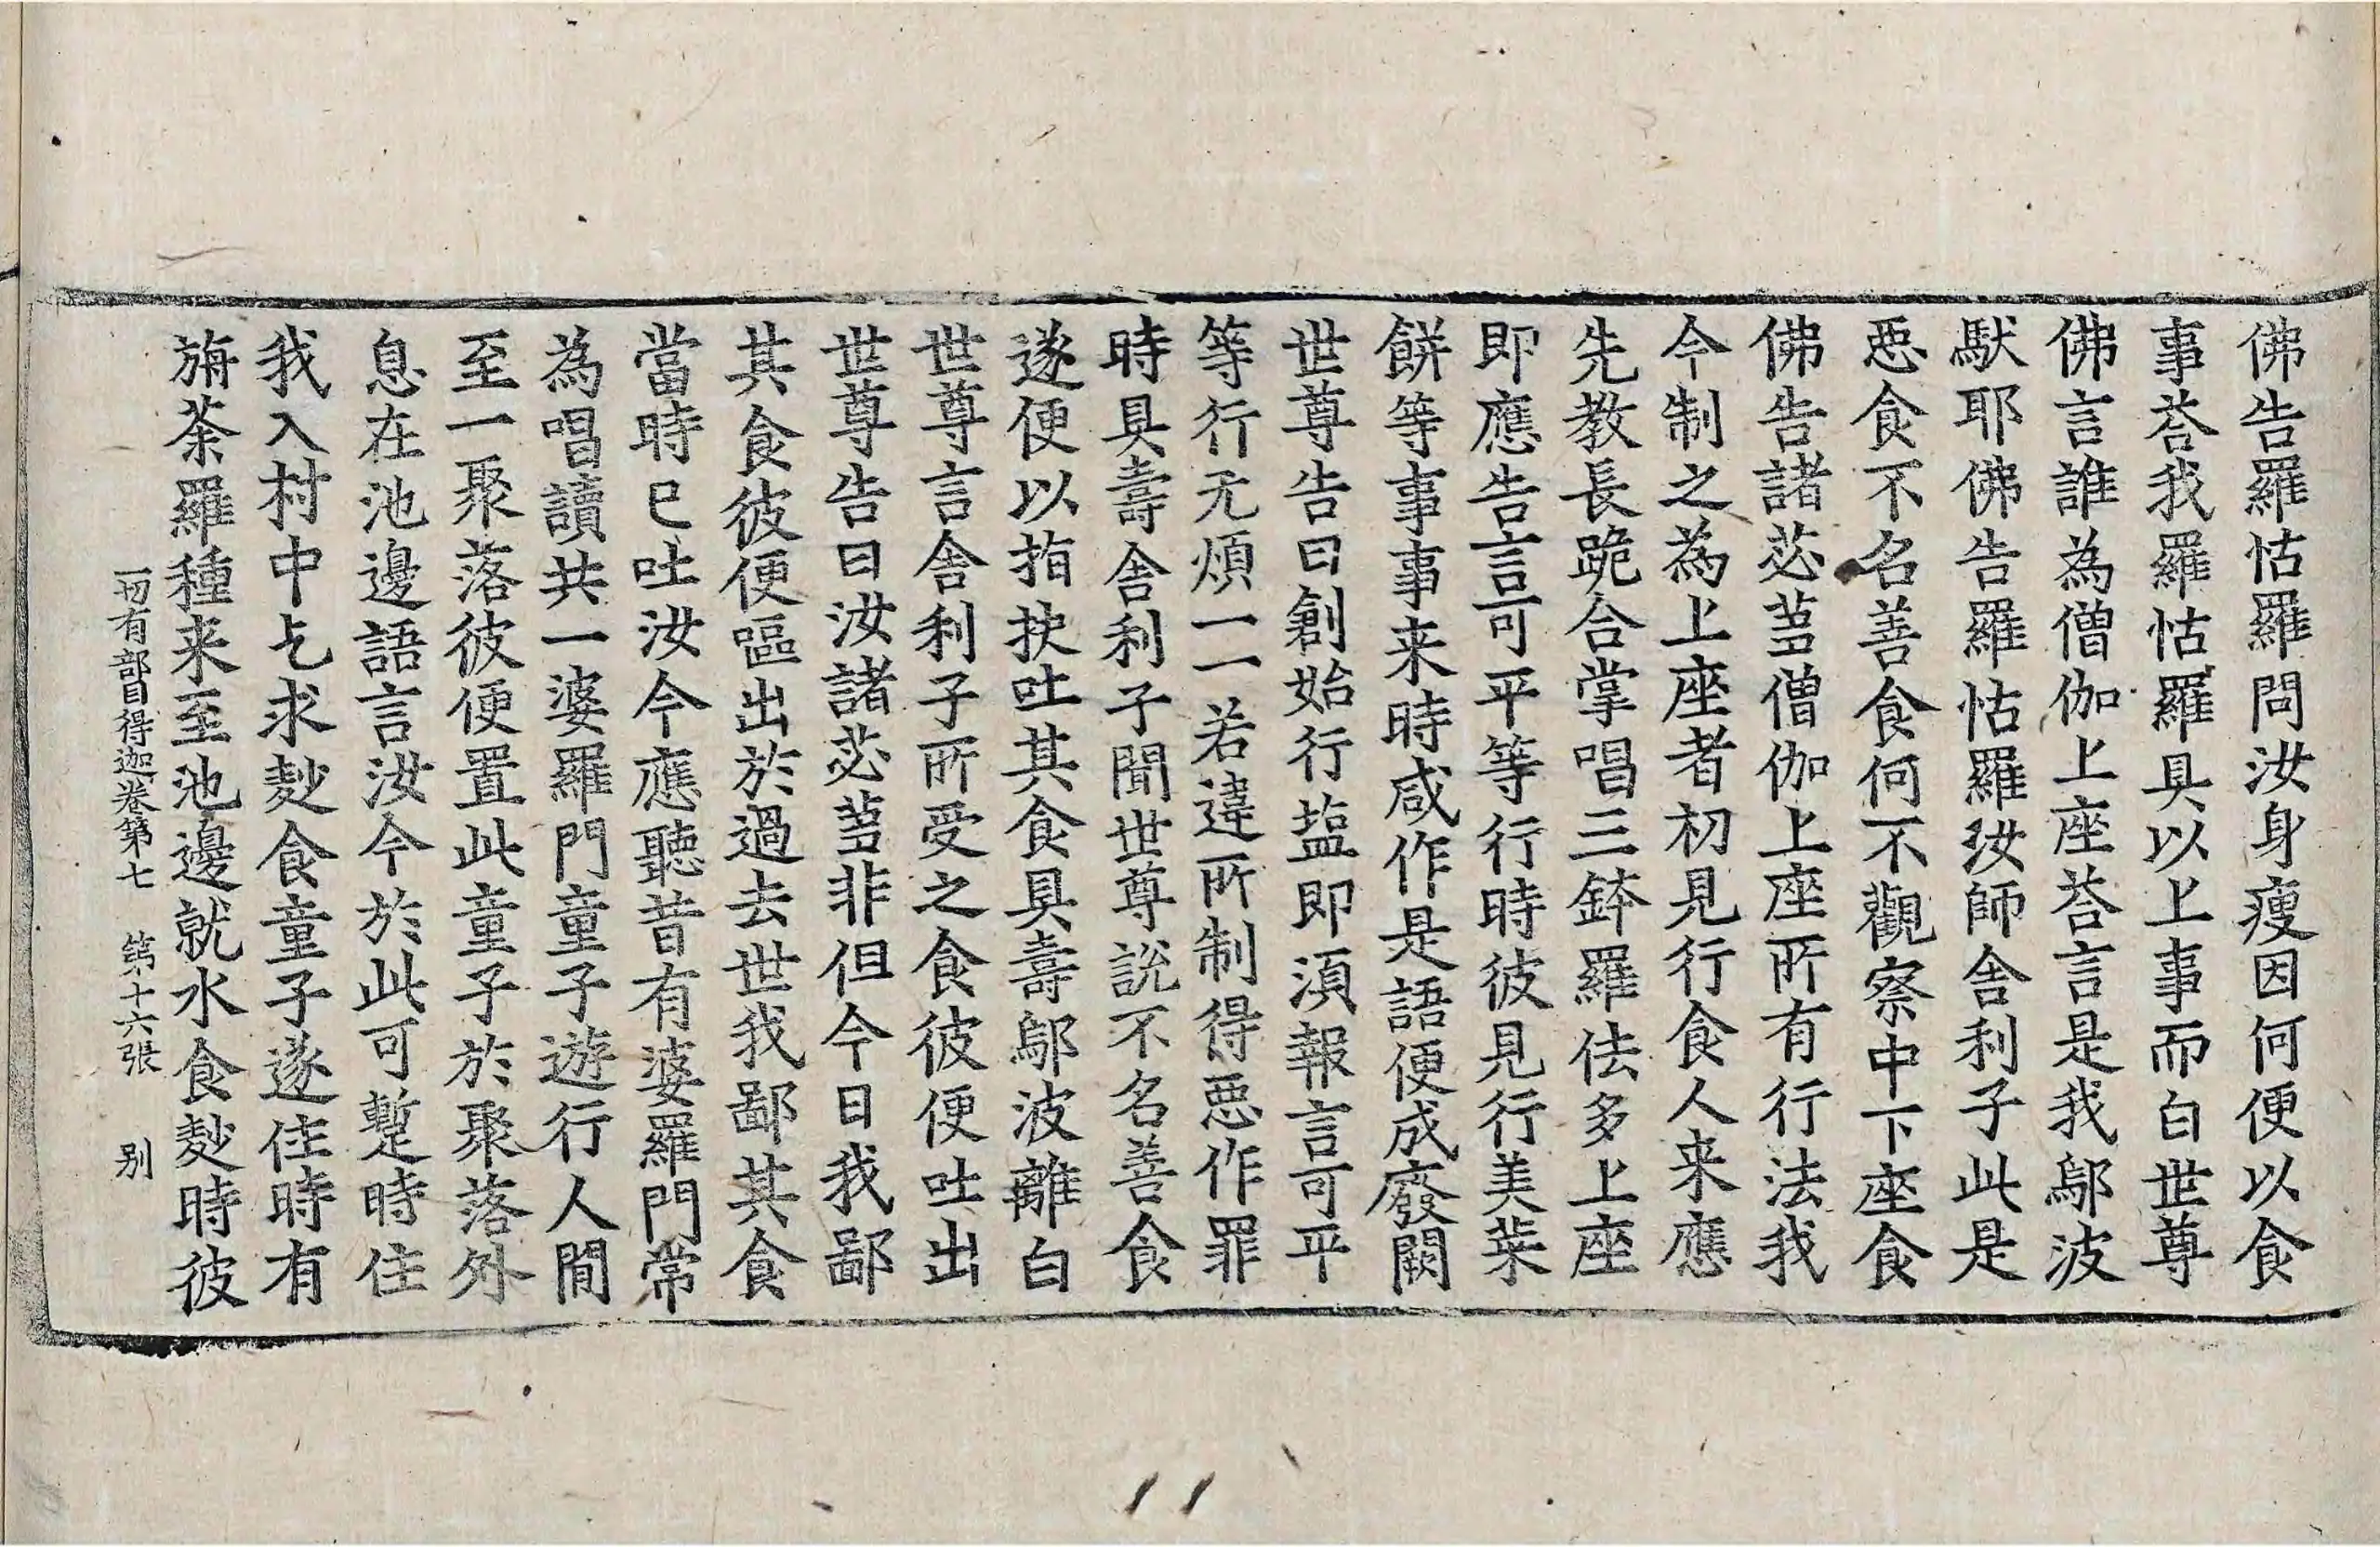 佛告羅怙羅問汝身瘦因何便以食
事荅我羅怙羅具以上事而白世尊
佛言誰為僧伽上座荅言是我鄔波
馱耶佛告羅怙羅汝師舍利子此是
惡食不名善食何不觀察中下座食
佛告諸苾蒭僧伽上座所有行法我
今制之為上座者初見行食人来應
先教長跪合掌唱三鉢羅佉多上座
即應告言可平等行時彼見行美菜
餅等事事来時咸作是語便成廢闕
世尊告曰創始行塩即湏報言可平
等行无煩一一若違所制得惡作罪
時具壽舍利子聞世尊說不名善食
遂便以指抰吐其食具壽鄔波離白
世尊言舍利子所受之食彼便吐出
世尊告曰汝諸苾蒭非但今日我鄙
其食彼便嘔出於過去世我鄙其食
當時已吐汝今應聽昔有婆羅門常
為唱讀共一婆羅門童子遊行人間
至一聚落彼便置此童子於聚落外
息在池邊語言汝今於此可蹔時住
我入村中乞求麨食童子遂住時有
旃荼羅種来至池邊就水食麨時彼
一切有部目得迦卷第七 第十六張 别
11